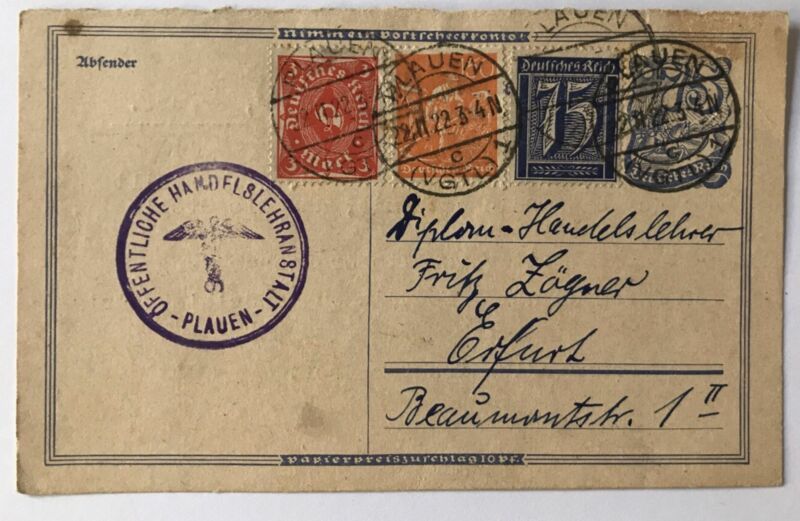 Nimm ein Postscheckkonto!
Absender
PLAUEN
Deutsches Reich
3 Mark 3
PLAUEN
2.11.22.3-4N
c
(VGTL)
Deutsches Reich
75
PLAUEN
PLAUEN
2.11.22.3-4N
c
ÖFFENTLICHE HANDELSLEHRANSTALT
- PLAUEN -
Diplom-Handelslehrer
Fritz Zögner
Erfurt
Beaumontstr. 1 II
Papierpreiszuschlag 10 Pf.